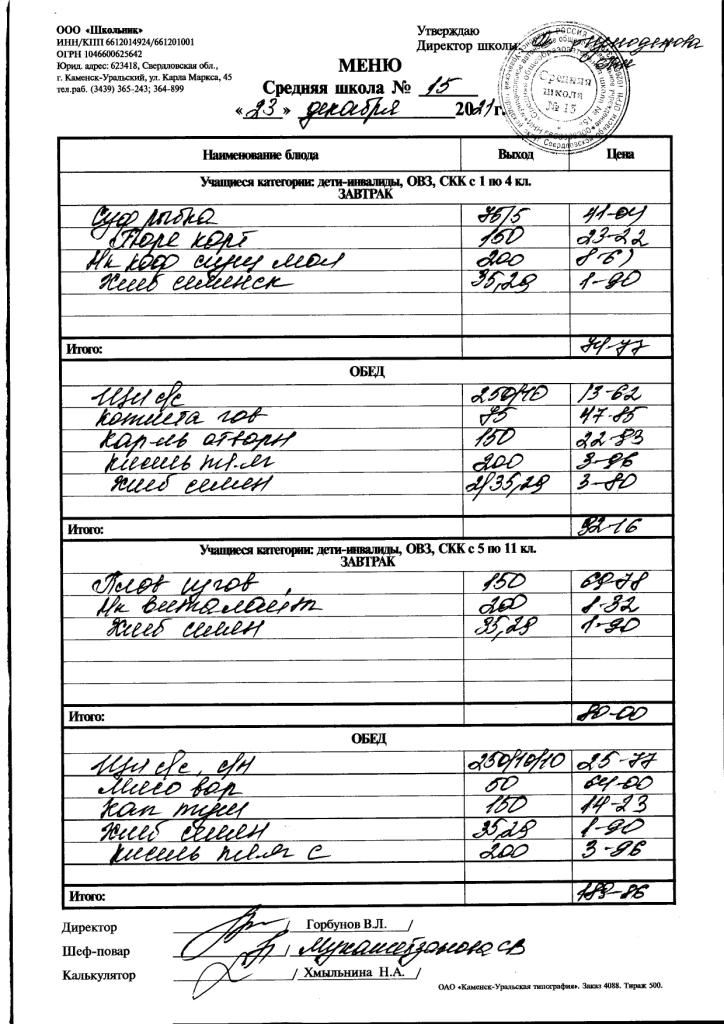 ООО «Школьник»
ИНН/КПП 6612014924/661201001
ОГРН 1046600625642
Юрид. адрес: 623418, Свердловская обл.,
г. Каменск-Уральский, ул. Карла Маркса, 45
тел.раб. (3439) 365-243; 364-899
Утверждаю
Директор школы:
Средняя школа № 15
МЕНЮ
Средняя школа № 15
«23» декабря 2021 г.
Наименование блюда Выход Цена
Учащиеся категории: дети-инвалиды, ОВЗ, СКК с 1 по 4 кл.
ЗАВТРАК
Суф рыбка 75/5 41-04
Пюре карт 150 23-22
Нк коф сгущ мол 200 8-61
Хлеб семинск 35,29 1-90
Итого: 74-77
ОБЕД
Щи с/с 250/10 13-62
Котлета гов 75 47-85
Карт-ль отварн 150 22-93
Кисель пл.яг 200 3-96
Хлеб семен 2/35,29 3-80
Итого: 92-16
Учащиеся категории: дети-инвалиды, ОВЗ, СКК с 5 по 11 кл.
ЗАВТРАК
Плов из гов 150 69-78
Нк витамайт 200 8-32
Хлеб семен 35,29 1-90
Итого: 80-00
ОБЕД
Щи с/с, с/н 250/10/10 25-77
Мясо вар 50 64-00
Кап туш 150 14-23
Хлеб семен 35,29 1-90
Кисель пл.яг с 200 3-96
Итого: 109-86
Директор / Горбунов В.Л. /
Шеф-повар / Мухаметзянова СВ
Калькулятор / Хмыльнина Н.А. /
ОАО «Каменск-Уральская типография». Заказ 4088. Тираж 500.